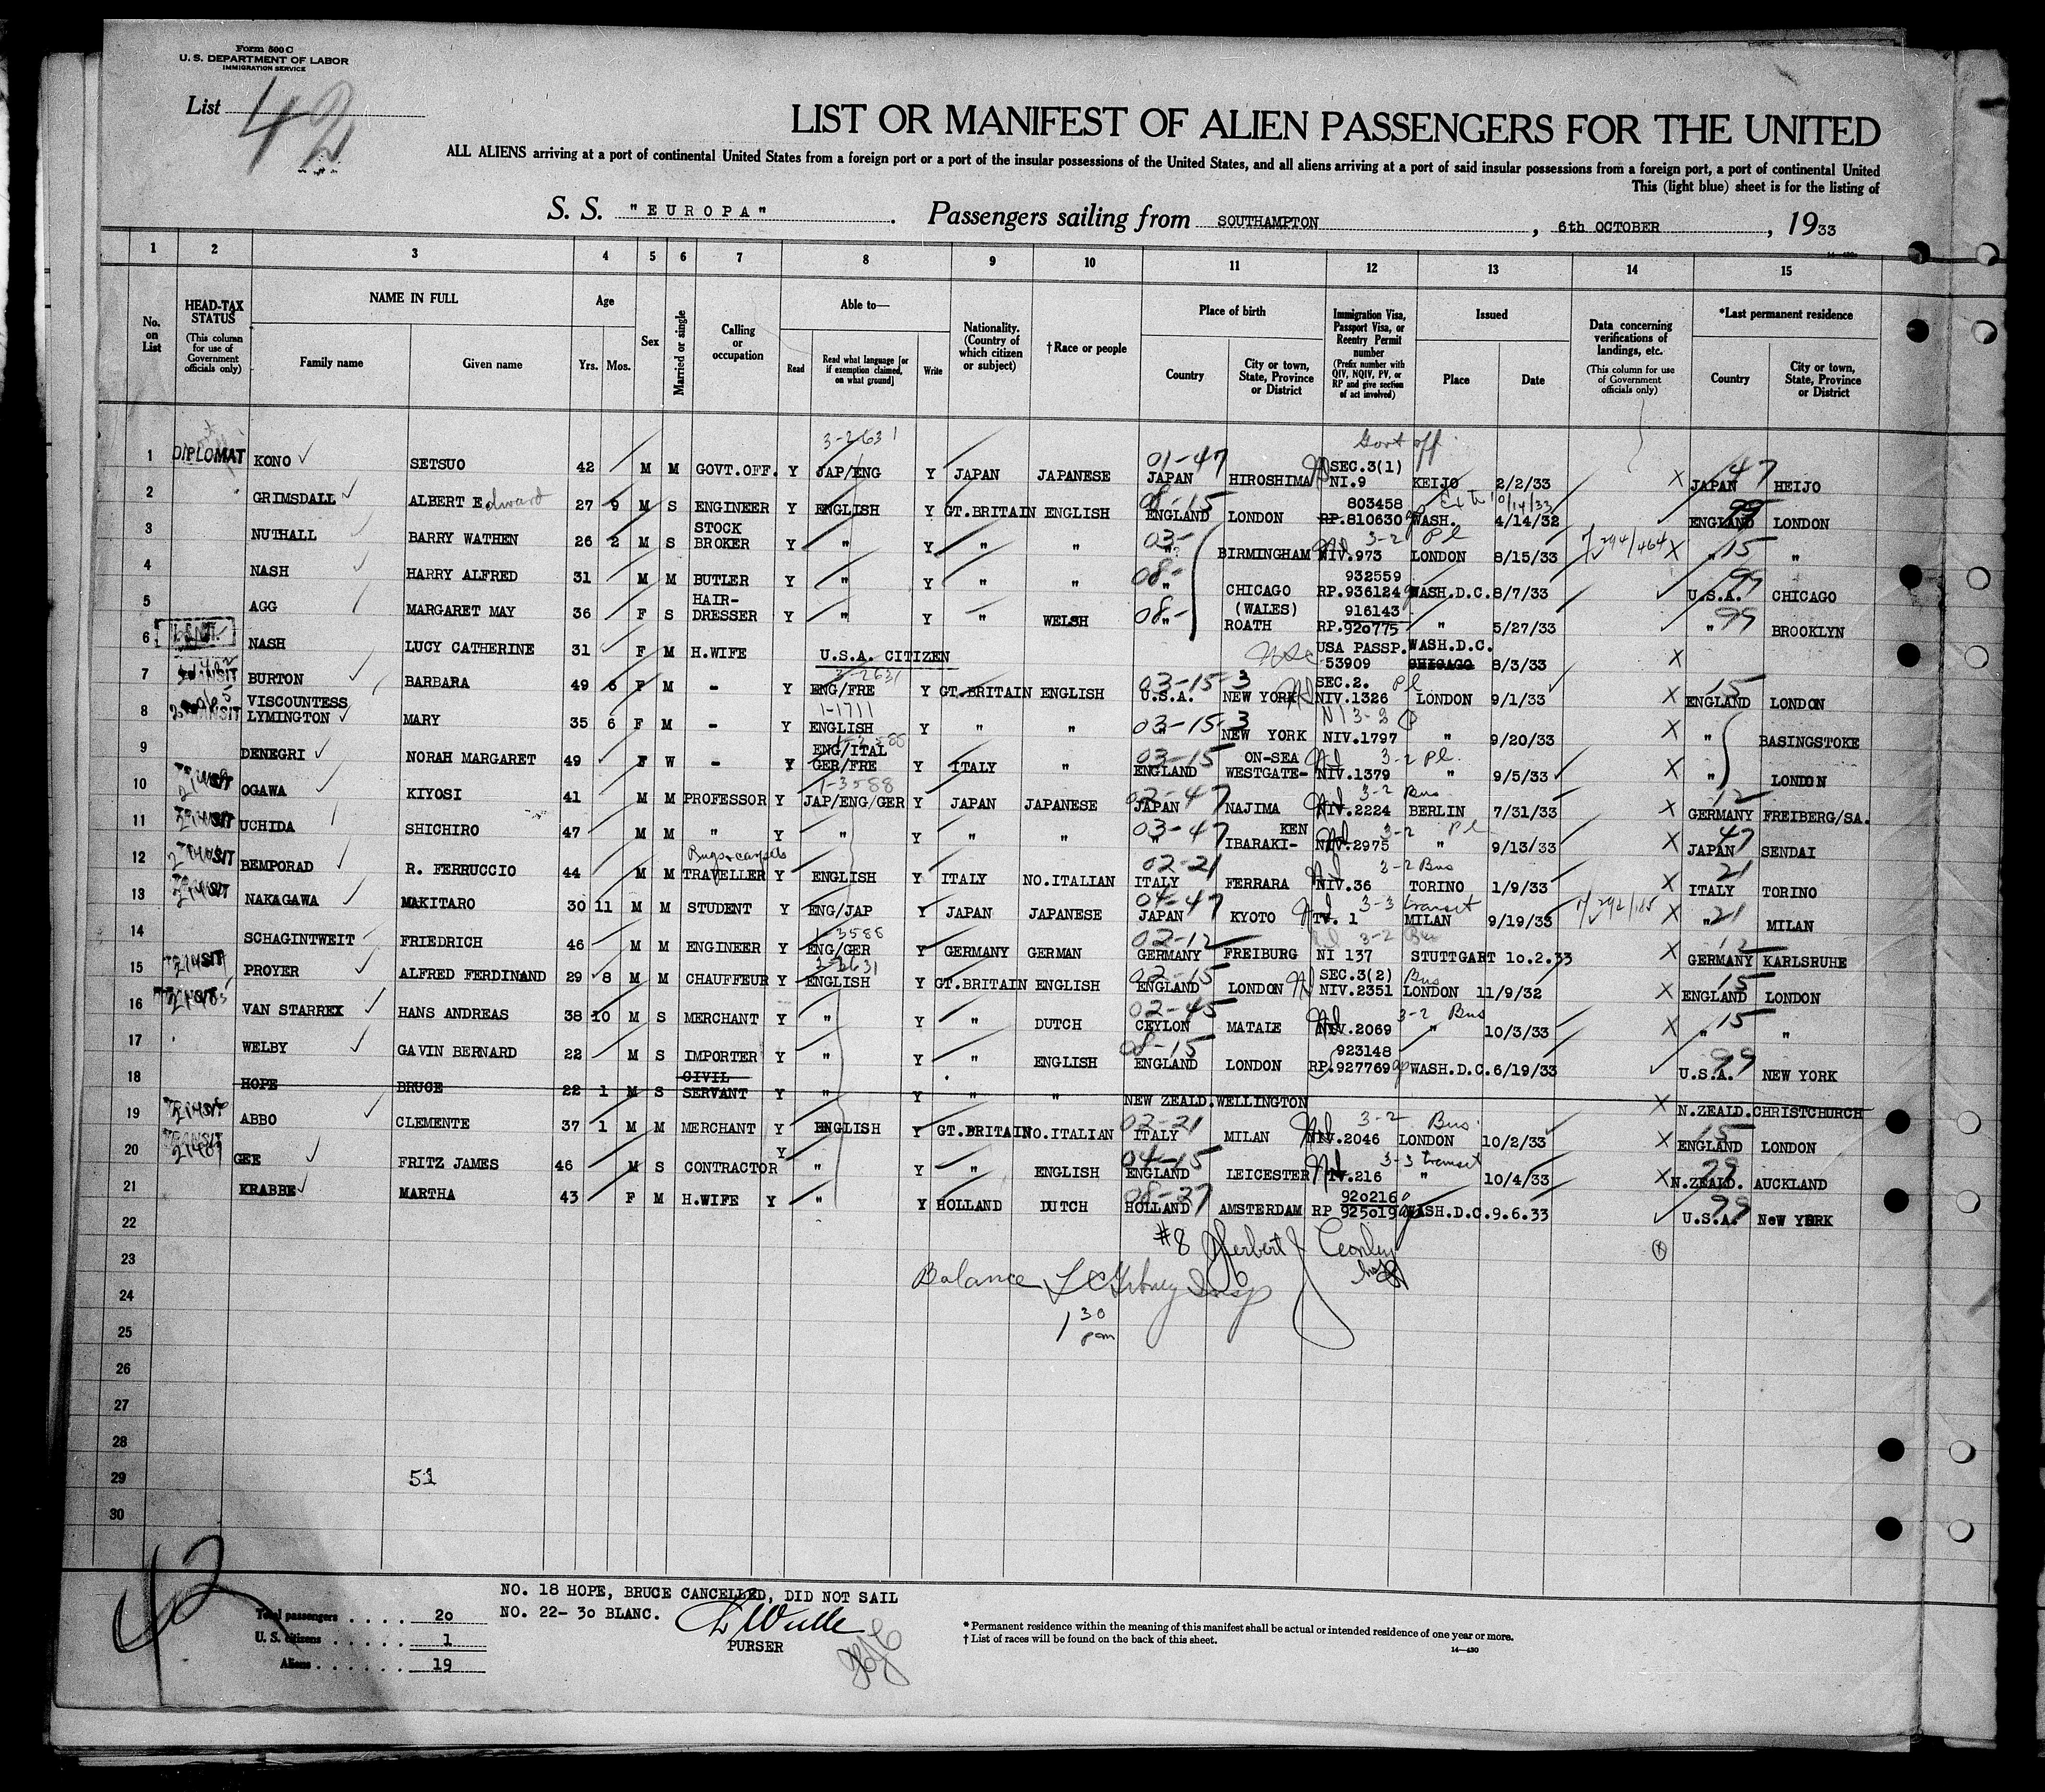 Form 500 C
U. S. DEPARTMENT OF LABOR
IMMIGRATION SERVICE
List 42
LIST OR MANIFEST OF ALIEN PASSENGERS FOR THE UNITED
ALL ALIENS arriving at a port of continental United States from a foreign port or a port of the insular possessions of the United States, and all aliens arriving at a port of said insular possessions from a foreign port, a port of continental United
This (light blue) sheet is for the listing of
S. S. "EUROPA". Passengers sailing from SOUTHAMPTON, 6th OCTOBER, 1933
1 2 3 4 5 6 7 8 9 10 11 12 13 14 15
No. on List
HEAD-TAX STATUS (This column for use of Government officials only)
NAME IN FULL
Family name Given name
Age
Yrs. Mos.
Sex
Married or single
Calling or occupation
Able to—
Read Read what language [or if exemption claimed, on what ground] Write
Nationality. (Country of which citizen or subject)
† Race or people
Place of birth
Country City or town, State, Province or District
Immigration Visa, Passport Visa, or Reentry Permit number (Prefix number with QIV, NQIV, PV, or RP and give section of act involved)
Issued
Place Date
Data concerning verifications of landings, etc. (This column for use of Government officials only)
*Last permanent residence
Country City or town, State, Province or District
1 DIPLOMAT KONO SETSUO 42 M M GOVT.OFF. Y JAP/ENG 3-2631 Y JAPAN JAPANESE 01-47 JAPAN HIROSHIMA Govt off. SEC.3(1) NI.9 KEIJO 2/2/33 X 47 JAPAN HEIJO
2 GRIMSDALL ALBERT Edward 27 9 M S ENGINEER Y ENGLISH Y GT.BRITAIN ENGLISH 08-15 ENGLAND LONDON 803458 RP.810630 WASH. 4/14/32 Ext 10/14/33 99 ENGLAND LONDON
3 NUTHALL BARRY WATHEN 26 2 M S STOCK BROKER Y " Y " " 03- " BIRMINGHAM 3-2 Pl NIV.973 LONDON 8/15/33 X " 15 "
4 NASH HARRY ALFRED 31 M M BUTLER Y " Y " " 08- " CHICAGO 932559 RP.936124 WASH.D.C. 8/7/33 99 U.S.A. CHICAGO
5 AGG MARGARET MAY 36 F S HAIR-DRESSER Y " Y " WELSH 08- " (WALES) ROATH 916143 RP.920775 " 5/27/33 " 99 BROOKLYN
6 NASH LUCY CATHERINE 31 F M H.WIFE U.S.A. CITIZEN USC USA PASSP. 53909 WASH.D.C. CHICAGO 8/3/33 X
7 TRANSIT BURTON BARBARA 49 6 F M - Y ENG/FRE 3-2631 Y GT.BRITAIN ENGLISH 03-15-3 U.S.A. NEW YORK SEC.2. Pl NIV.1326 LONDON 9/1/33 X 15 ENGLAND LONDON
8 TRANSIT VISCOUNTESS LYMINGTON MARY 35 6 F M - Y 1-1711 ENGLISH Y " " 03-15-3 " NEW YORK NIV.1797 " 9/20/33 X " BASINGSTOKE
9 DENEGRI NORAH MARGARET 49 F W - Y ENG/ITAL GER/FRE Y ITALY " 03-15 ENGLAND ON-SEA WESTGATE- 3-2 Pl. NIV.1379 " 9/5/33 X " LONDON
10 TRANSIT OGAWA KIYOSI 41 M M PROFESSOR Y 1-3588 JAP/ENG/GER Y JAPAN JAPANESE 02-47 JAPAN NAJIMA 3-2 Bus NIV.2224 BERLIN 7/31/33 X 12 GERMANY FREIBERG/SA.
11 TRANSIT UCHIDA SHICHIRO 47 M M " Y " Y " " 03-47 " KEN IBARAKI- 3-2 Pl NIV.2975 " 9/13/33 X 47 JAPAN SENDAI
12 TRANSIT BEMPORAD R. FERRUCCIO 44 M M Rugs & carpets TRAVELLER Y ENGLISH Y ITALY NO.ITALIAN 02-21 ITALY FERRARA 3-2 Bus NIV.36 TORINO 1/9/33 X 21 ITALY TORINO
13 TRANSIT NAKAGAWA MAKITARO 30 11 M M STUDENT Y ENG/JAP Y JAPAN JAPANESE 04-47 JAPAN KYOTO 3-3 transit TV. 1 MILAN 9/19/33 X " 21 MILAN
14 SCHAGINTWEIT FRIEDRICH 46 M M ENGINEER Y 1-3588 ENG/GER Y GERMANY GERMAN 02-12 GERMANY FREIBURG 3-2 Bus NI 137 STUTTGART 10.2.33 X 12 GERMANY KARLSRUHE
15 TRANSIT PROYER ALFRED FERDINAND 29 8 M M CHAUFFEUR Y ENGLISH Y GT.BRITAIN ENGLISH 02-15 ENGLAND LONDON SEC.3(2) Bus NIV.2351 LONDON 11/9/32 X 15 ENGLAND LONDON
16 TRANSIT VAN STARREX HANS ANDREAS 38 10 M S MERCHANT Y " Y " DUTCH 02-45 CEYLON MATALE 3-2 Bus NIV.2069 " 10/3/33 X " 15 "
17 WELBY GAVIN BERNARD 22 M S IMPORTER Y " Y " ENGLISH 08-15 ENGLAND LONDON 923148 RP.927769 WASH.D.C. 6/19/33 99 U.S.A. NEW YORK
18 HOPE BRUCE 22 1 M S CIVIL SERVANT Y " Y " " NEW ZEALD. WELLINGTON X N.ZEALD. CHRISTCHURCH
19 TRANSIT ABBO CLEMENTE 37 1 M M MERCHANT Y ENGLISH Y GT.BRITAIN NO.ITALIAN 02-21 ITALY MILAN 3-2 Bus. NIV.2046 LONDON 10/2/33 X 15 ENGLAND LONDON
20 TRANSIT GEE FRITZ JAMES 46 M S CONTRACTOR Y " Y " ENGLISH 04-15 ENGLAND LEICESTER 3-3 transit TV.216 " 10/4/33 X 29 N.ZEALD. AUCKLAND
21 KRABBE MARTHA 43 F M H.WIFE Y " Y HOLLAND DUTCH 08-27 HOLLAND AMSTERDAM 920216 RP 925019 WASH.D.C. 9.6.33 99 U.S.A. NeW YORK
22
23 #8 Herbert J
24 Balance Insp
25 1 30 pm
26
27
28
29 51
30
42
NO. 18 HOPE, BRUCE CANCELLED, DID NOT SAIL
NO. 22- 30 BLANC.
PURSER
Total passengers . . . . 20
U. S. citizens . . . . . 1
Aliens . . . . . . 19
* Permanent residence within the meaning of this manifest shall be actual or intended residence of one year or more.
† List of races will be found on the back of this sheet.
14—430